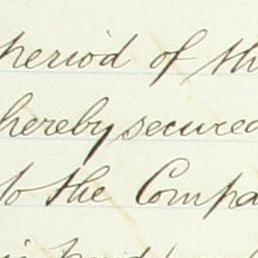 period of th
hereby secured
to the Compa